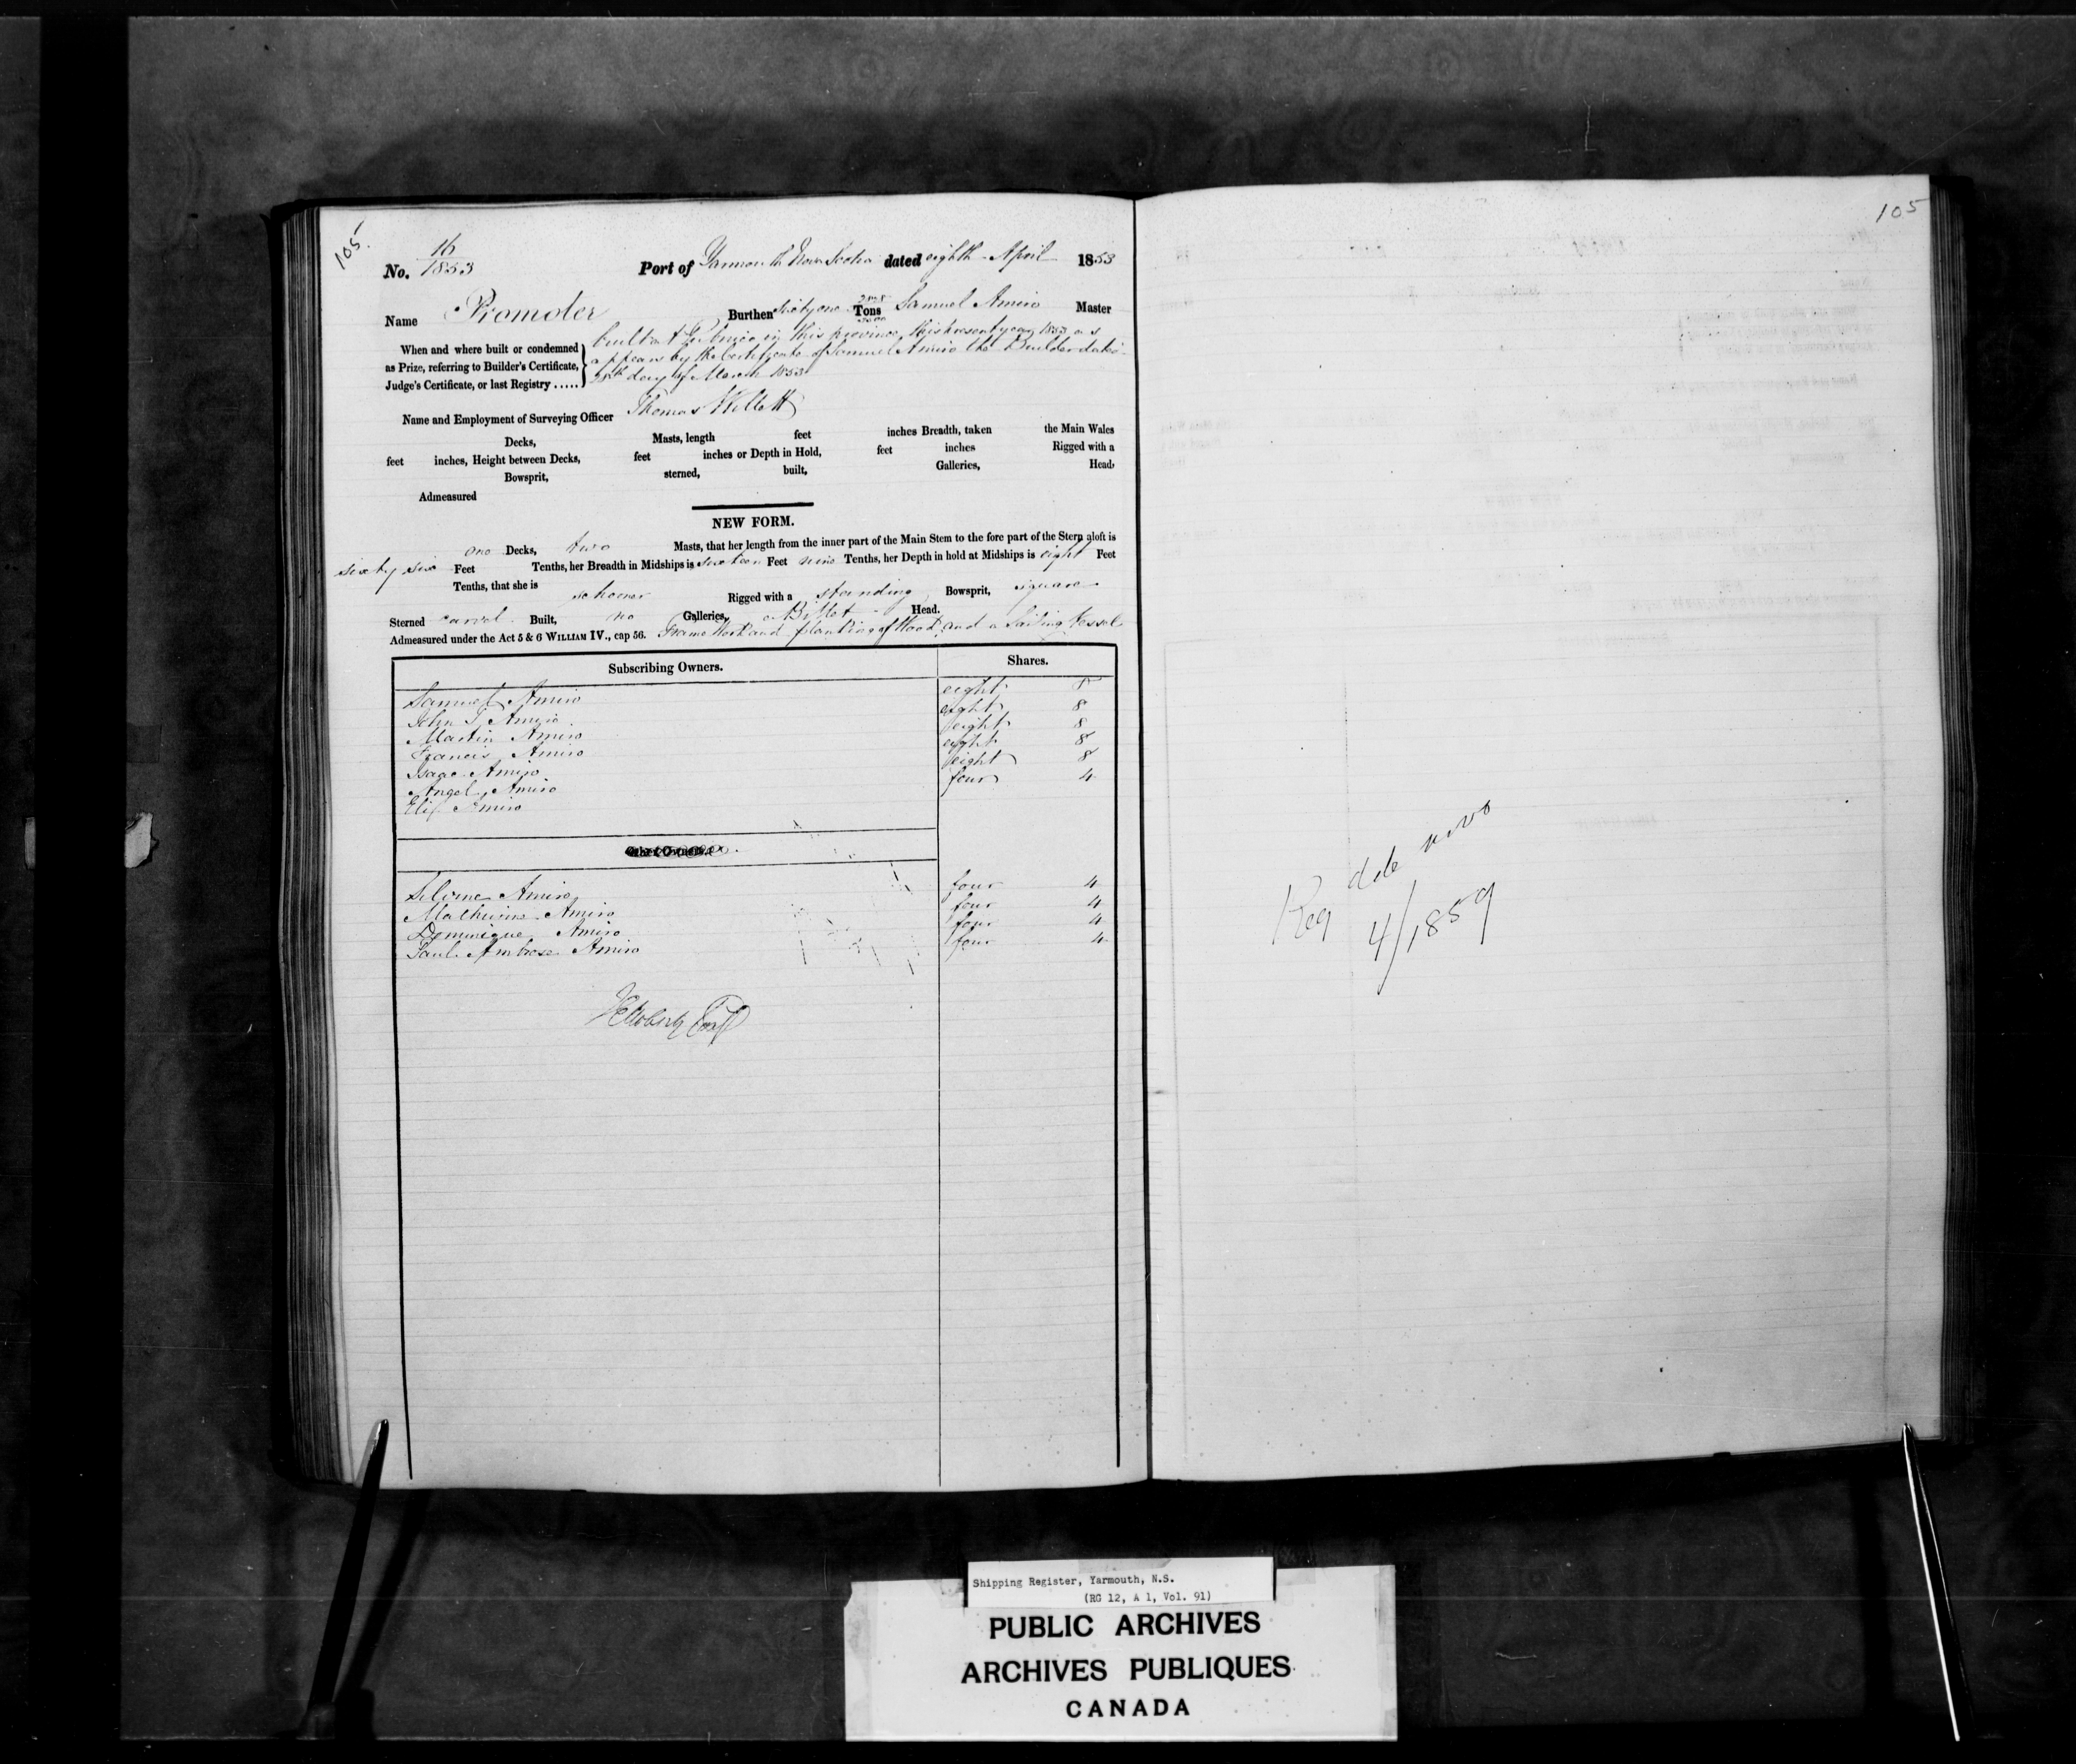 105
16
No. 1853
Port of Yarmouth Nova Scotia dated eighth April 1853
Name Promoter Burthen Sixty one Tons Samuel Amiro Master
When and where built or condemned
as Prize, referring to Builder's Certificate,
Judge's Certificate, or last Registry .....
built at Pubnico in this province, this present year 1853 as
appears by the Certificate of Samuel Amiro the Builder dated
day of March 1853
Name and Employment of Surveying Officer Thomas Willett
Decks, Masts, length feet inches Breadth, taken the Main Wales
feet inches, Height between Decks, feet inches or Depth in Hold, feet inches Rigged with a
Bowsprit, sterned, built, Galleries, Head,
Admeasured
NEW FORM.
one Decks, two Masts, that her length from the inner part of the Main Stem to the fore part of the Stern aloft is
sixty six Feet Tenths, her Breadth in Midships is sixteen Feet nine Tenths, her Depth in hold at Midships is eight Feet
Tenths, that she is schooner Rigged with a standing Bowsprit, square
Sterned carvel Built, no Galleries, a Billet Head.
Admeasured under the Act 5 & 6 WILLIAM IV., cap 56. Frame Work and planking of Wood, and a Sailing Vessel
Subscribing Owners. Shares.
Samuel Amiro eight 8
John T, Amiro eight 8
Martin Amiro eight 8
Francis Amiro eight 8
Isaac Amiro eight 8
Angel, Amiro four 4
Eli Amiro
Other Owners.
Silome Amiro four 4
Mathurine Amiro four 4
Dominique Amiro four 4
Paul Ambrose Amiro four 4
105
Reg de novo
4/1859
Shipping Register, Yarmouth, N.S.
(RG 12, A 1, Vol. 91)
PUBLIC ARCHIVES
ARCHIVES PUBLIQUES
CANADA